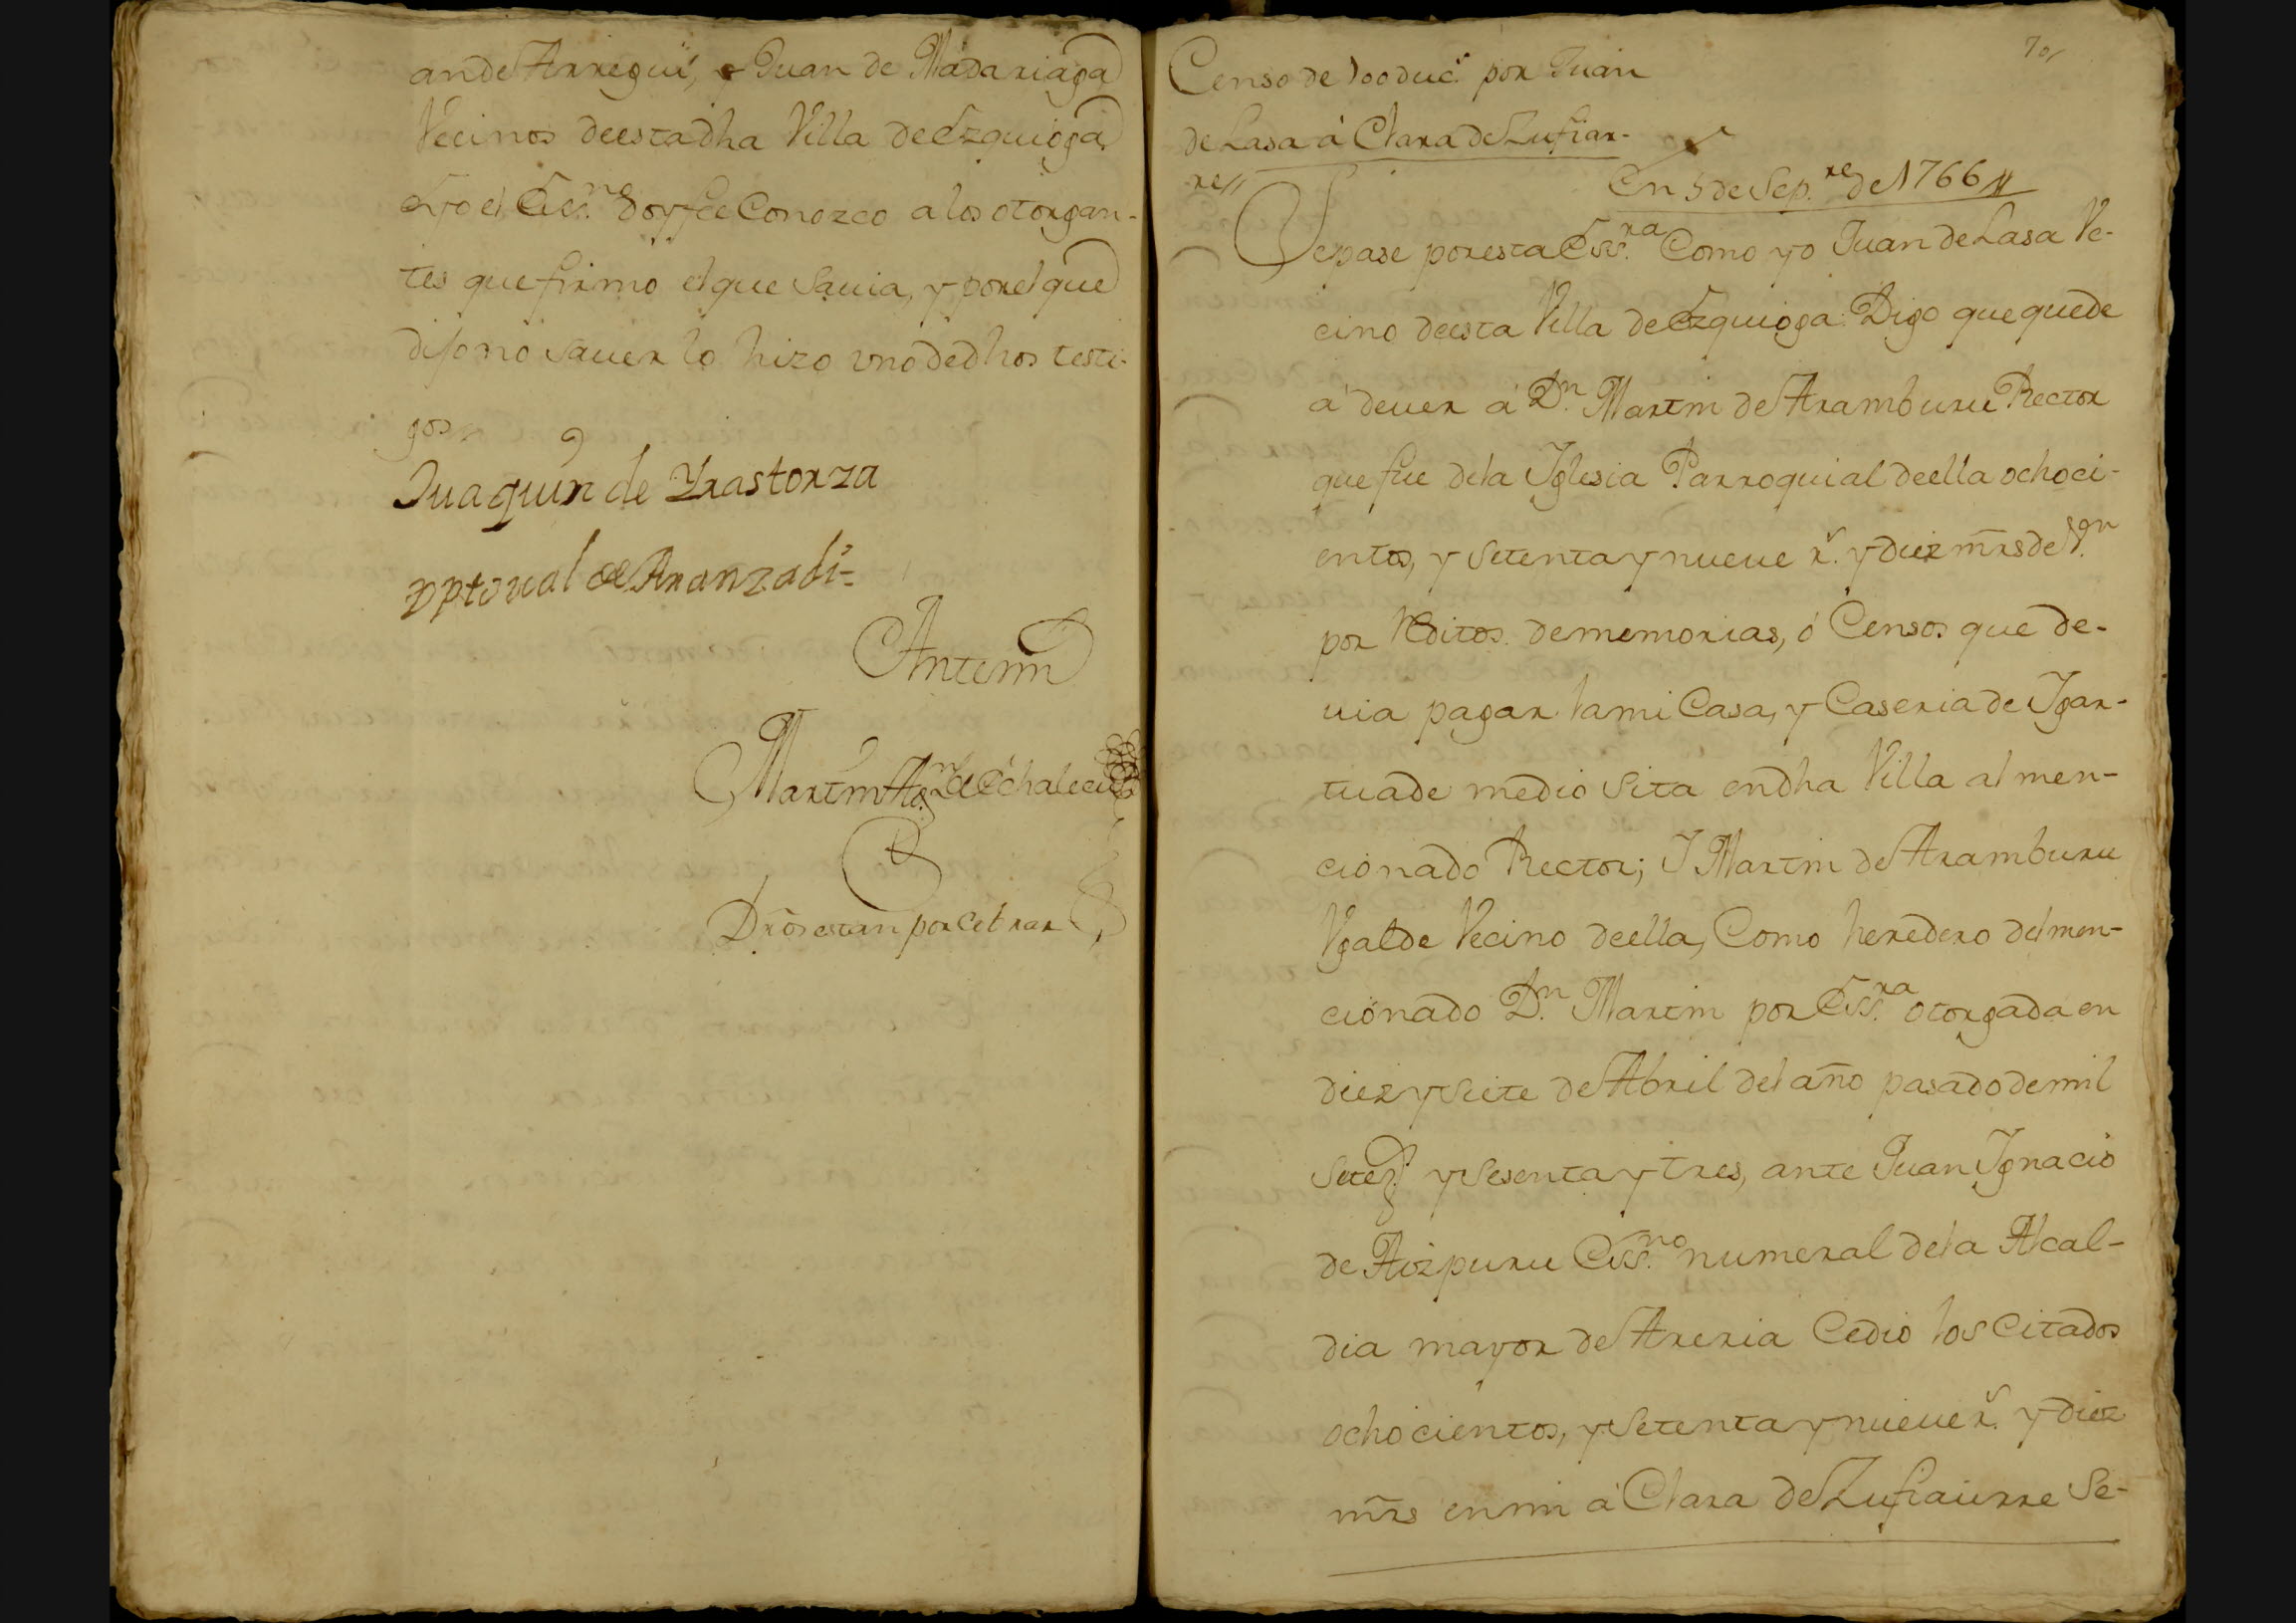 an de Arregui, y Juan de Madariaga
Vecinos deesta dha Villa de Ezquioga
e yo el Ess.no doy fee Conozco a los otorgan-
tes que firmo el que Savia, y por el que
dijo no Saver lo hizo vno de dhos testi-
gos
Juaquin de Yrastorza
de Aranzadi
Antemi
Martin de Echalecu
Dros estan por Cobrar
70
Censo de 100 duc.s por Juan
de Lasa á Clara de Zufiar-
re//
En 5 de Sep.re de 1766//
Sepase por esta Ess.ra Como yo Juan de Lasa Ve-
cino deesta Villa de Ezquioga: Digo que quede
á dever á D.n Martin de Aramburu Rector
que fue dela Iglesia Parroquial deella ochoci-
entos, y Setenta y nueve r.s y diez mrs de V.on
por Reditos de memorias, ó Censos que de-
via pagar la mi Casa, y Caseria de Igar-
tua de medio Sita en dha Villa al men-
cionado Rector; I Martin de Aramburu
Vgalde Vecino deella, Como heredero del men-
cionado D.n Martin por Ess.ra otorgada en
diez y Siete de Abril del año pasado de mil
Setez.s y Sesenta y tres, ante Juan Ignacio
de Aizpuru Ess.no numeral dela Alcal-
dia mayor de Areria Cedio los Citados
ochocientos, y Setenta y nueve r.s y diez
mrs en mi á Clara de Zufiaurre Se-